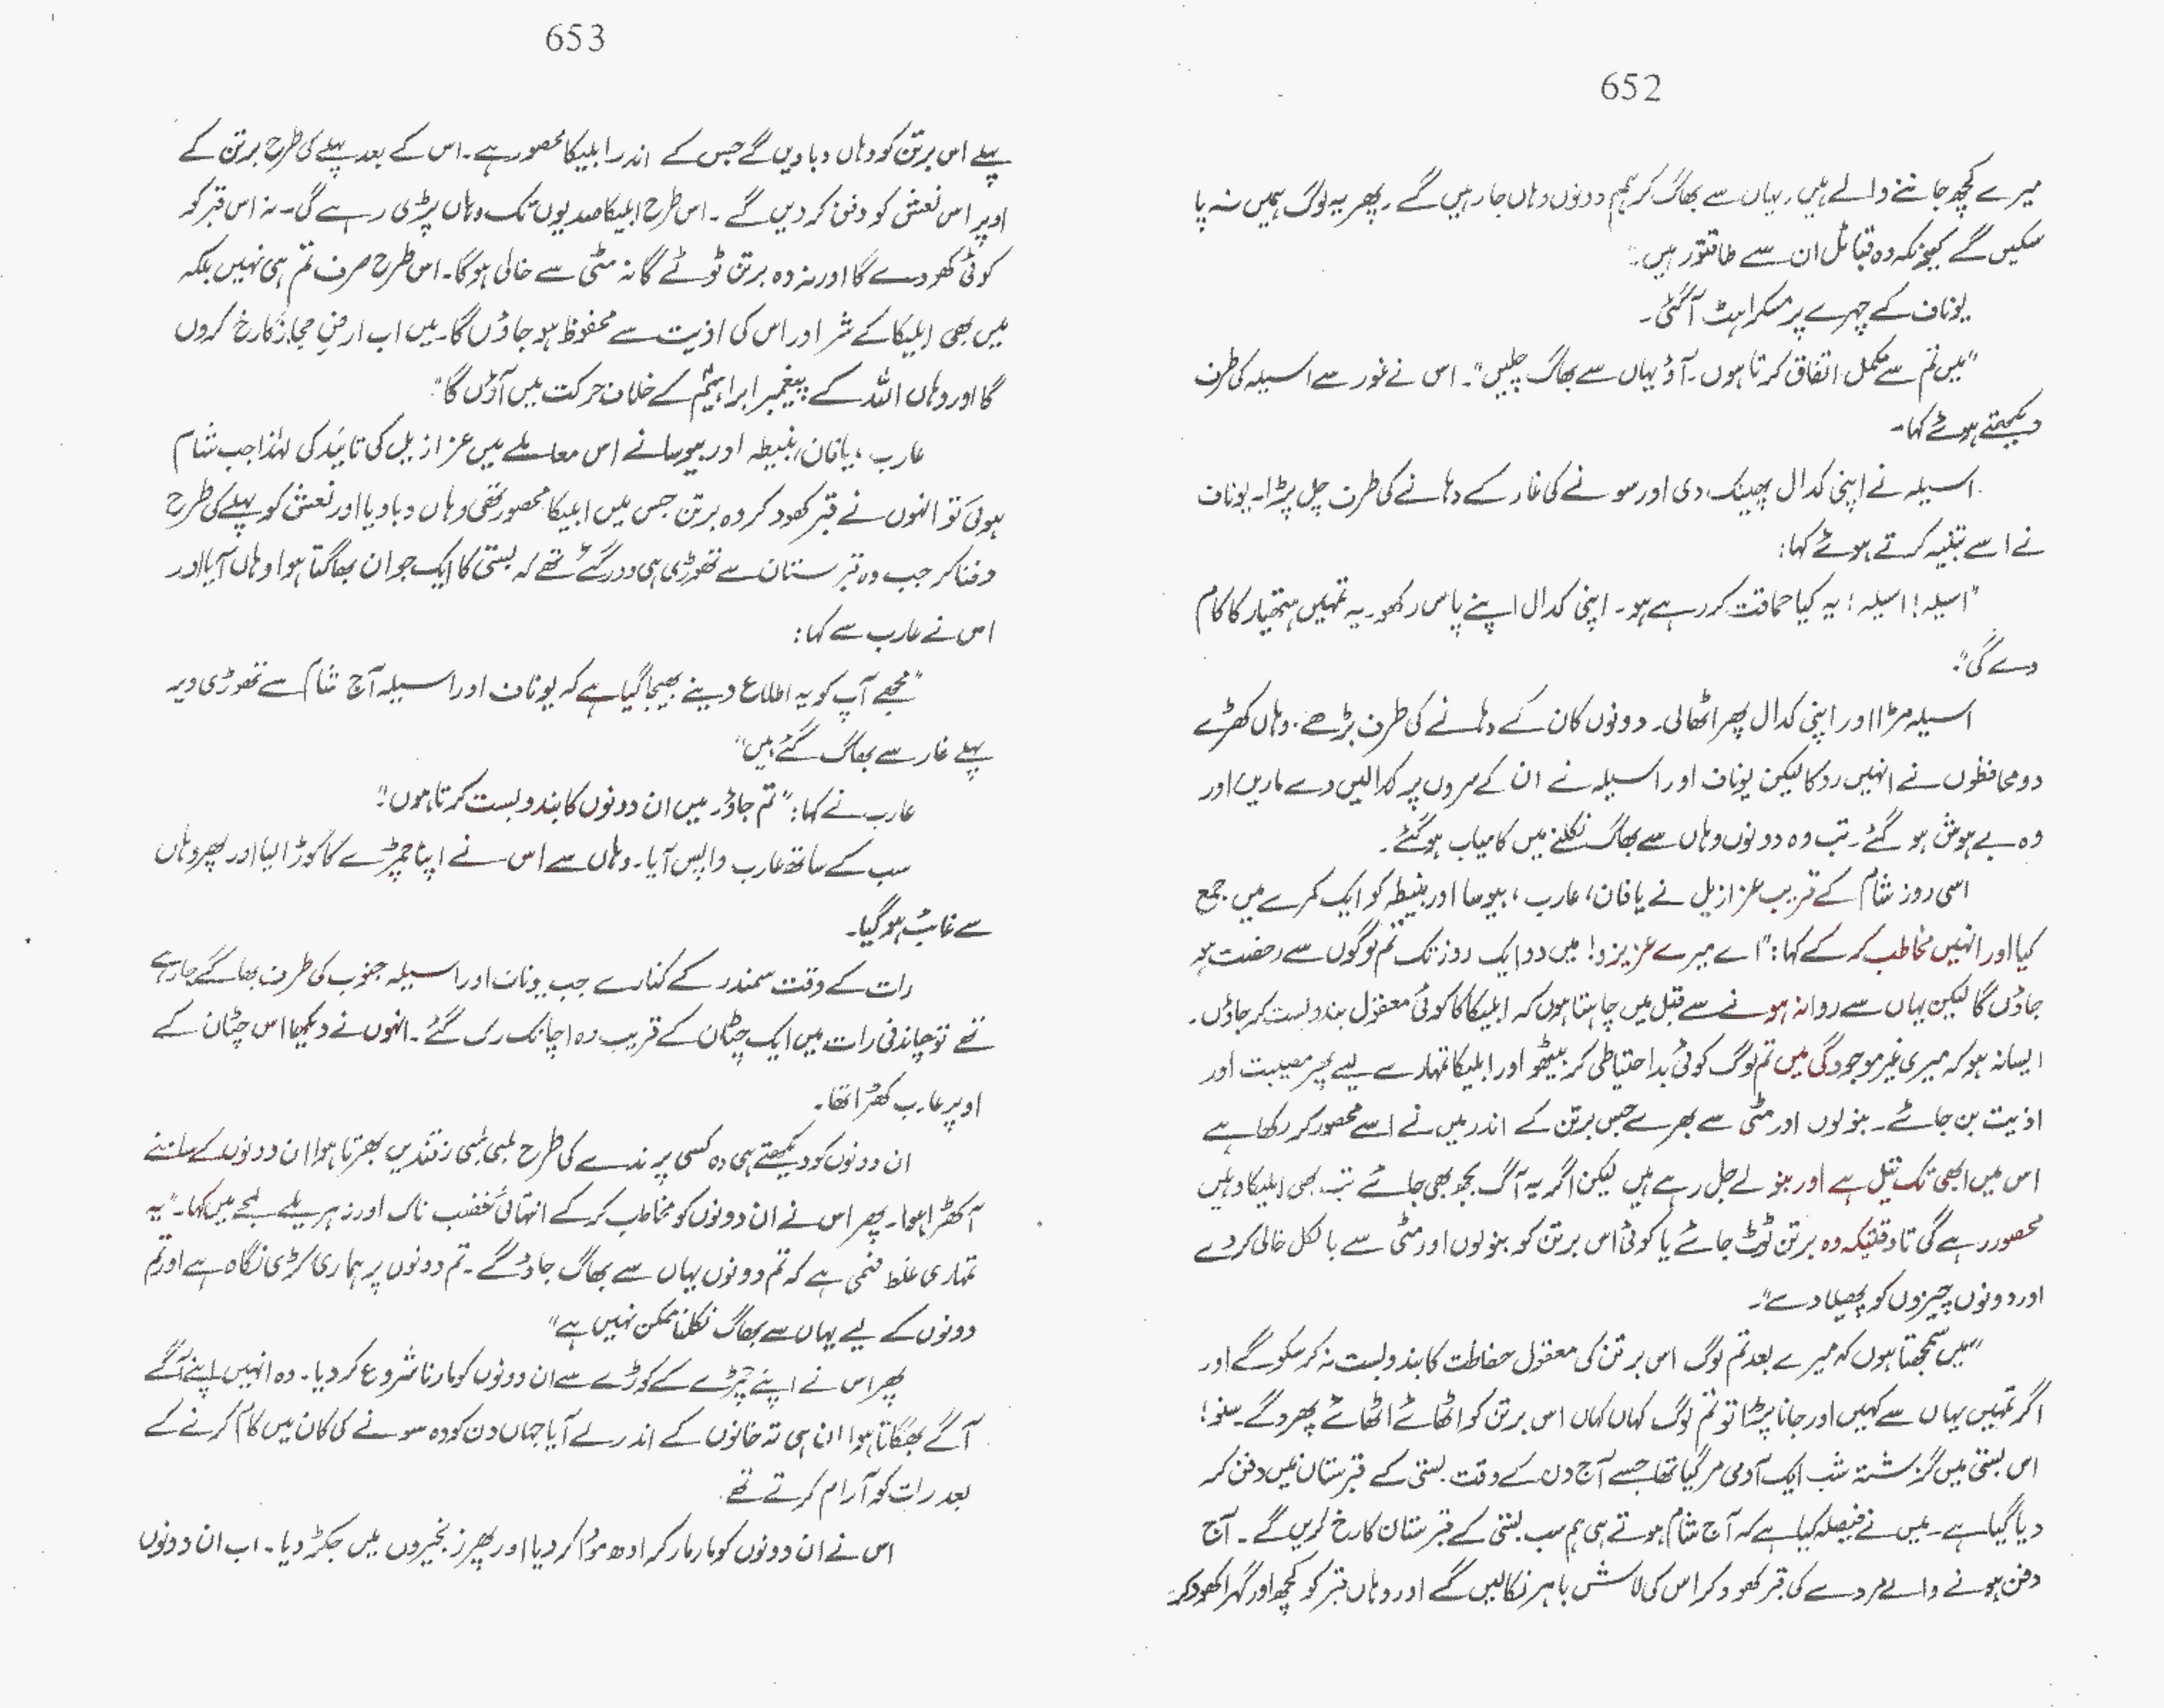 652
میرے کچھ جاننے والے ہیں۔ یہاں سے بھاگ کر ہم دونوں وہاں جا رہیں گے۔ پھر یہ لوگ ہمیں نہ پا
سکیں گے کیونکہ وہ قبائل ان سے طاقتور ہیں۔"
یوناف کے چہرے پر مسکراہٹ آگئی۔
"میں تم سے مکمل اتفاق کرتا ہوں۔ آؤ یہاں سے بھاگ چلیں"۔ اس نے غور سے اسیلہ کی طرف
دیکھتے ہوئے کہا۔
اسیلہ نے اپنی کدال پھینک دی اور سونے کی غار کے دہانے کی طرف چل پڑا۔ یوناف
نے اسے تنبیہ کرتے ہوئے کہا:
"اسیلہ! اسیلہ! یہ کیا حماقت کر رہے ہو۔ اپنی کدال اپنے پاس رکھو۔ یہ تمہیں ہتھیار کا کام
دے گی"۔
اسیلہ مڑا اور اپنی کدال پھر اٹھالی۔ دونوں کان کے دہانے کی طرف بڑھے۔ وہاں کھڑے
دو محافظوں نے انہیں روکا لیکن یوناف اور اسیلہ نے ان کے سروں پر کدالیں دے ماریں اور
وہ بے ہوش ہو گئے۔ تب وہ دونوں وہاں سے بھاگ نکلنے میں کامیاب ہو گئے۔
اسی روز شام کے قریب عزازیل نے یافان، عارب، بیوسا اور بنیطہ کو ایک کمرے میں جمع
کیا اور انہیں مخاطب کر کے کہا: "اے میرے عزیزو! میں دو ایک روز تک تم لوگوں سے رخصت ہو
جاؤں گا لیکن یہاں سے روانہ ہونے سے قبل میں چاہتا ہوں کہ ابلیکا کا کوئی معقول بندوبست کر جاؤں۔
ایسا نہ ہو کہ میری غیر موجودگی میں تم لوگ کوئی بد احتیاطی کر بیٹھو اور ابلیکا تمہارے لیے پھر مصیبت اور
اذیت بن جائے۔ بنولوں اور مٹی سے بھرے جس برتن کے اندر میں نے اسے محصور کر رکھا ہے
اس میں ابھی تک تیل ہے اور بنولے جل رہے ہیں لیکن اگر یہ آگ بجھ بھی جائے تب بھی ابلیکا وہیں
محصور رہے گی تاوقتیکہ وہ برتن ٹوٹ جائے یا کوئی اس برتن کو بنولوں اور مٹی سے بالکل خالی کر دے
اور دونوں چیزوں کو پھیلا دے"۔
"میں سمجھتا ہوں کہ میرے بعد تم لوگ اس برتن کی معقول حفاظت کا بندوبست نہ کر سکو گے اور
اگر تمہیں یہاں سے کہیں اور جانا پڑا تو تم لوگ کہاں کہاں اس برتن کو اٹھائے اٹھائے پھرو گے۔ سنو!
اس بستی میں گزشتہ شب ایک آدمی مر گیا تھا جسے آج دن کے وقت بستی کے قبرستان میں دفن کر
دیا گیا ہے۔ میں نے فیصلہ کیا ہے کہ آج شام ہوتے ہی ہم سب بستی کے قبرستان کا رخ کریں گے۔ آج
دفن ہونے والے مردے کی قبر کھود کر اس کی لاش باہر نکالیں گے اور وہاں قبر کو کچھ اور گہرا کھود کر
653
پہلے اس برتن کو وہاں دبا دیں گے جس کے اندر ابلیکا محصور ہے۔ اس کے بعد پہلے کی طرح برتن کے
اوپر اس نعش کو دفن کر دیں گے۔ اس طرح ابلیکا صدیوں تک وہاں پڑی رہے گی۔ نہ اس قبر کو
کوئی کھودے گا اور نہ وہ برتن ٹوٹے گا نہ مٹی سے خالی ہو گا۔ اس طرح صرف تم ہی نہیں بلکہ
میں بھی ابلیکا کے شر اور اس کی اذیت سے محفوظ ہو جاؤں گا۔ میں اب ارض حجاز کا رخ کروں
گا اور وہاں اللہ کے پیغمبر ابراہیمؑ کے خلاف حرکت میں آؤں گا"۔
عارب، یافان، بنیطہ اور بیوسا نے اس معاملے میں عزازیل کی تائید کی لہٰذا جب شام
ہوئی تو انہوں نے قبر کھود کر وہ برتن جس میں ابلیکا محصور تھی وہاں دبا دیا اور نعش کو پہلے کی طرح
دفنا کر جب وہ قبرستان سے تھوڑی ہی دور گئے تھے کہ بستی کا ایک جوان بھاگتا ہوا وہاں آیا اور
اس نے عارب سے کہا:
"مجھے آپ کو یہ اطلاع دینے بھیجا گیا ہے کہ یوناف اور اسیلہ آج شام سے تھوڑی دیر
پہلے غار سے بھاگ گئے ہیں"
عارب نے کہا: "تم جاؤ۔ میں ان دونوں کا بندوبست کرتا ہوں"۔
سب کے ساتھ عارب واپس آیا۔ وہاں سے اس نے اپنا چمڑے کا کوڑا لیا اور پھر وہاں
سے غائب ہو گیا۔
رات کے وقت سمندر کے کنارے جب یوناف اور اسیلہ جنوب کی طرف بھاگے جا رہے
تھے تو چاندنی رات میں ایک چٹان کے قریب وہ اچانک رک گئے۔ انہوں نے دیکھا اس چٹان کے
اوپر عارب کھڑا تھا۔
ان دونوں کو دیکھتے ہی وہ کسی پرندے کی طرح لمبی لمبی زقندیں بھرتا ہوا ان دونوں کے سامنے
آ کھڑا ہوا۔ پھر اس نے ان دونوں کو مخاطب کر کے انتہائی غضب ناک اور زہریلے لہجے میں کہا۔ "یہ
تمہاری غلط فہمی ہے کہ تم دونوں یہاں سے بھاگ جاؤ گے۔ تم دونوں پر ہماری کڑی نگاہ ہے اور تم
دونوں کے لیے یہاں سے بھاگ نکلنا ممکن نہیں ہے"
پھر اس نے اپنے چمڑے کے کوڑے سے ان دونوں کو مارنا شروع کر دیا۔ وہ انہیں اپنے آگے
آگے بھگاتا ہوا ان ہی تہ خانوں کے اندر لے آیا جہاں دن کو وہ سونے کی کان میں کام کرنے کے
بعد رات کو آرام کرتے تھے۔
اس نے ان دونوں کو مار مار کر ادھ مؤا کر دیا اور پھر زنجیروں میں جکڑ دیا۔ اب ان دونوں